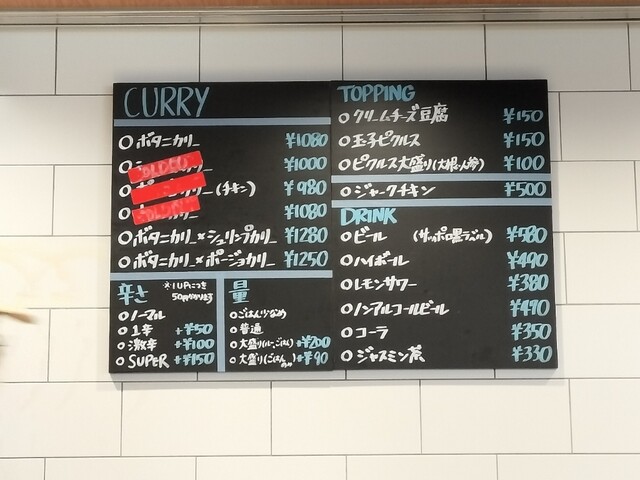 CURRY
ボタニカリー ¥1080
¥1000
(チキン) ¥980
¥1080
ボタニカリー×シュリンプカリー ¥1280
ボタニカリー×ポージョカリー ¥1250
辛さ ※1UPにつき
50円かかります
ノーマル
1辛 +¥50
激辛 +¥100
SUPER +¥150
量
ごはん少なめ
普通
大盛り(ルー・ごはん) +¥200
大盛り(ごはんのみ) +¥90
TOPPING
クリームチーズ豆腐 ¥150
玉子ピクルス ¥150
ピクルス大盛り(大根・人参) ¥100
ジャークチキン ¥500
DRINK
ビール (サッポロ黒ラベル) ¥580
ハイボール ¥490
レモンサワー ¥380
ノンアルコールビール ¥490
コーラ ¥350
ジャスミン茶 ¥330